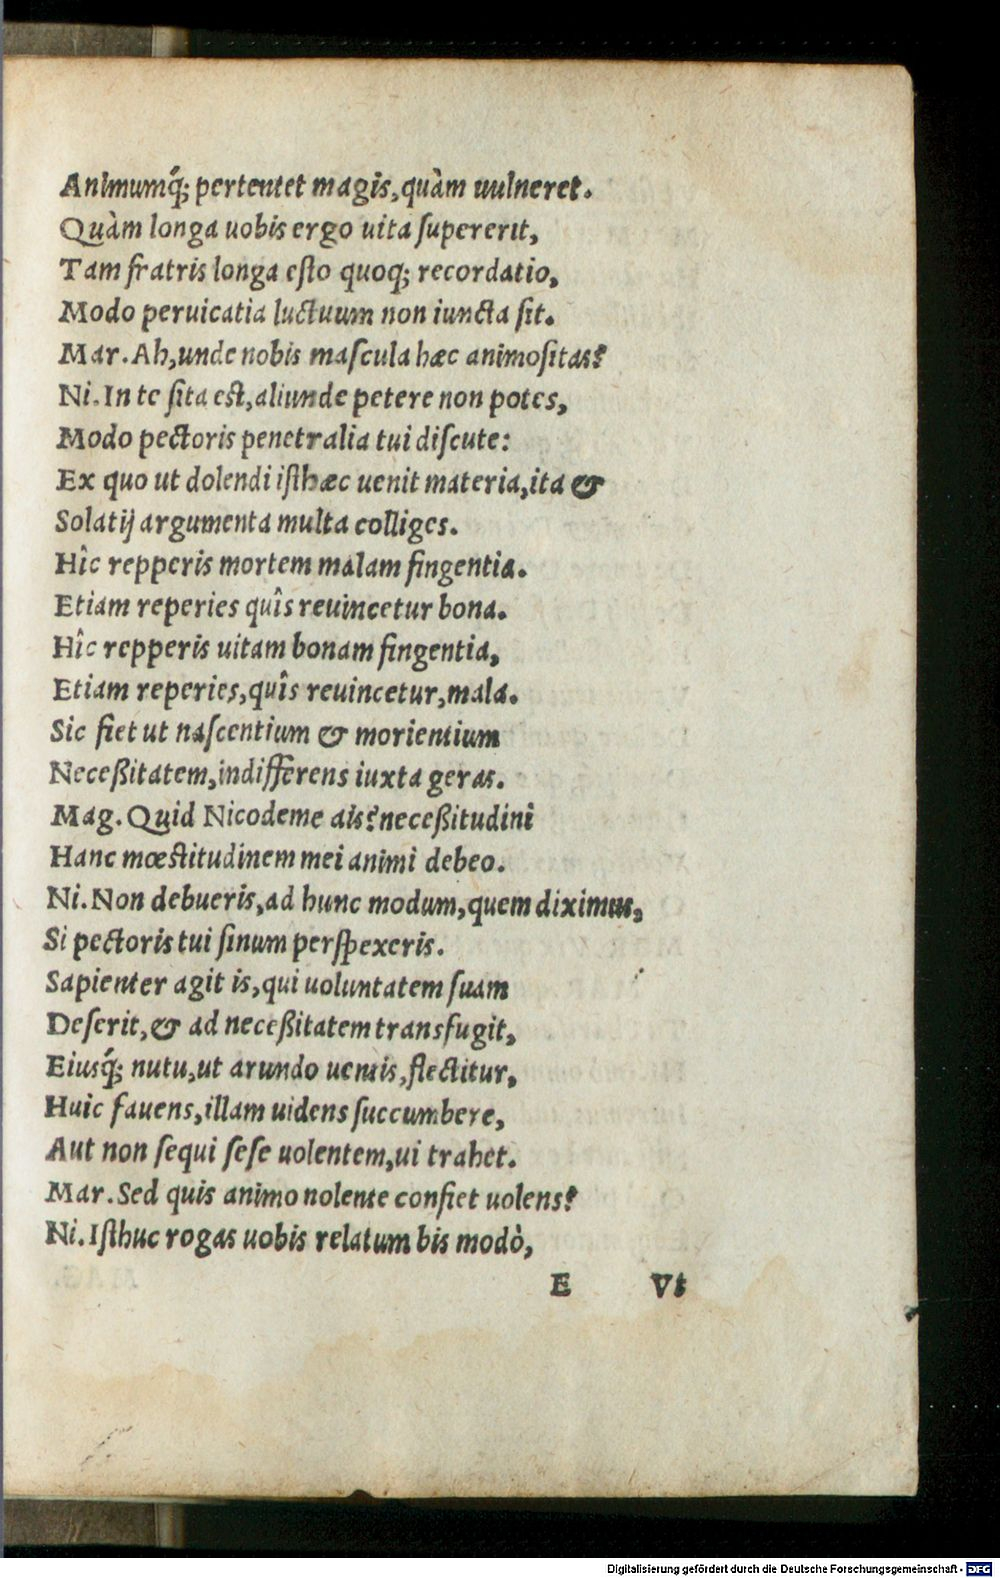 Animumq́; pertentet magis,quàm uulneret.
Quàm longa uobis ergo uita ſupererit,
Tam fratris longa eſto quoq; recordatio,
Modo peruicatia luctuum non iuncta ſit.
Mar. Ah,unde nobis maſcula hæc animoſitas?
Ni. In te ſita eſt,aliunde petere non potes,
Modo pectoris penetralia tui diſcute:
Ex quo ut dolendi iſthæc uenit materia,ita &
Solatij argumenta multa colliges.
Hîc repperis mortem malam fingentia.
Etiam reperies quîs reuincetur bona.
Hîc repperis uitam bonam fingentia,
Etiam reperies,quîs reuincetur,mala.
Sic fiet ut naſcentium & morientium
Neceßitatem,indifferens iuxta geras.
Mag. Quid Nicodeme ais?neceßitudini
Hanc mœstitudinem mei animi debeo.
Ni. Non debueris,ad hunc modum,quem diximus,
Si pectoris tui ſinum perſpexeris.
Sapienter agit is,qui uoluntatem ſuam
Deſerit,& ad neceßitatem transfugit,
Eiusq́; nutu,ut arundo uentis,flectitur,
Huic fauens,illam uidens ſuccumbere,
Aut non ſequi ſeſe uolentem,ui trahet.
Mar. Sed quis animo nolente confiet uolens?
Ni. Iſthuc rogas uobis relatum bis modò,
E Vt
Digitalisierung gefördert durch die Deutsche Forschungsgemeinschaft - DFG